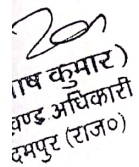 ाष कुमार)
खण्ड अधिकारी
दमपुर (राज०)